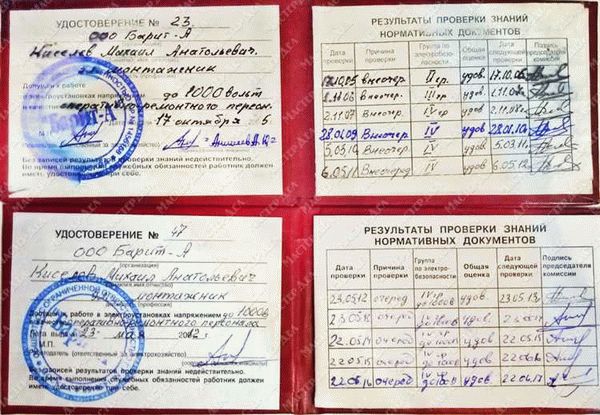 УДОСТОВЕРЕНИЕ № 23
ООО Барит-А
Киселев Михаил Анатольевич
монтажник
Допущен к работе
в электроустановках напряжением до 1000 вольт
в качестве оперативно ремонтного персон.
17 октября 5
Без записей результатов проверки знаний недействительно.
Во время выполнения служебных обязанностей работник должен
иметь удостоверение при себе.
РЕЗУЛЬТАТЫ ПРОВЕРКИ ЗНАНИЙ
НОРМАТИВНЫХ ДОКУМЕНТОВ
Дата проверки Причина проверки Группа по электро- безопасности Общая оценка Дата следующей проверки Подпись председателя комиссии
17.10.05 внеочер. II гр. удов. 17.10.06
8.11.06 внеочер. III гр. удов.
2.11.07 внеочер. IV гр. удов.
28.01.09 Внеочер. IV удов 28.01.10
5.03.10 Внеочер. IV удов 5.03.11
6.05.11 Внеочеред IV удов 6.05.12
УДОСТОВЕРЕНИЕ № 47
ООО Барит-А
(организация)
Киселев Михаил Анатольевич
(фамилия, имя, отчество)
монтажник
Допущен к работе в электроустановках напряжением до 1000В
оперативно ремонтного персонала
Дата выдачи 23 мая 2012 г.
М.П.
Работодатель (ответственный за электрохозяйство)
Без записей результатов проверки знаний недействительно.
Во время выполнения служебных обязанностей работник должен
иметь удостоверение при себе.
РЕЗУЛЬТАТЫ ПРОВЕРКИ ЗНАНИЙ
НОРМАТИВНЫХ ДОКУМЕНТОВ
Дата проверки Причина проверки Группа по электро- безопасности Общая оценка Дата следующей проверки Подпись председателя комиссии
23.05.12 очеред IV гр до 1000В удов. 23.05.13
очеред удов
22.05.14 очеред IV гр удов 22.05.15
22.05.15 очеред IV гр удов 22.05.16
22.05.16 очеред IV гр до 1000 удов 22.05.17